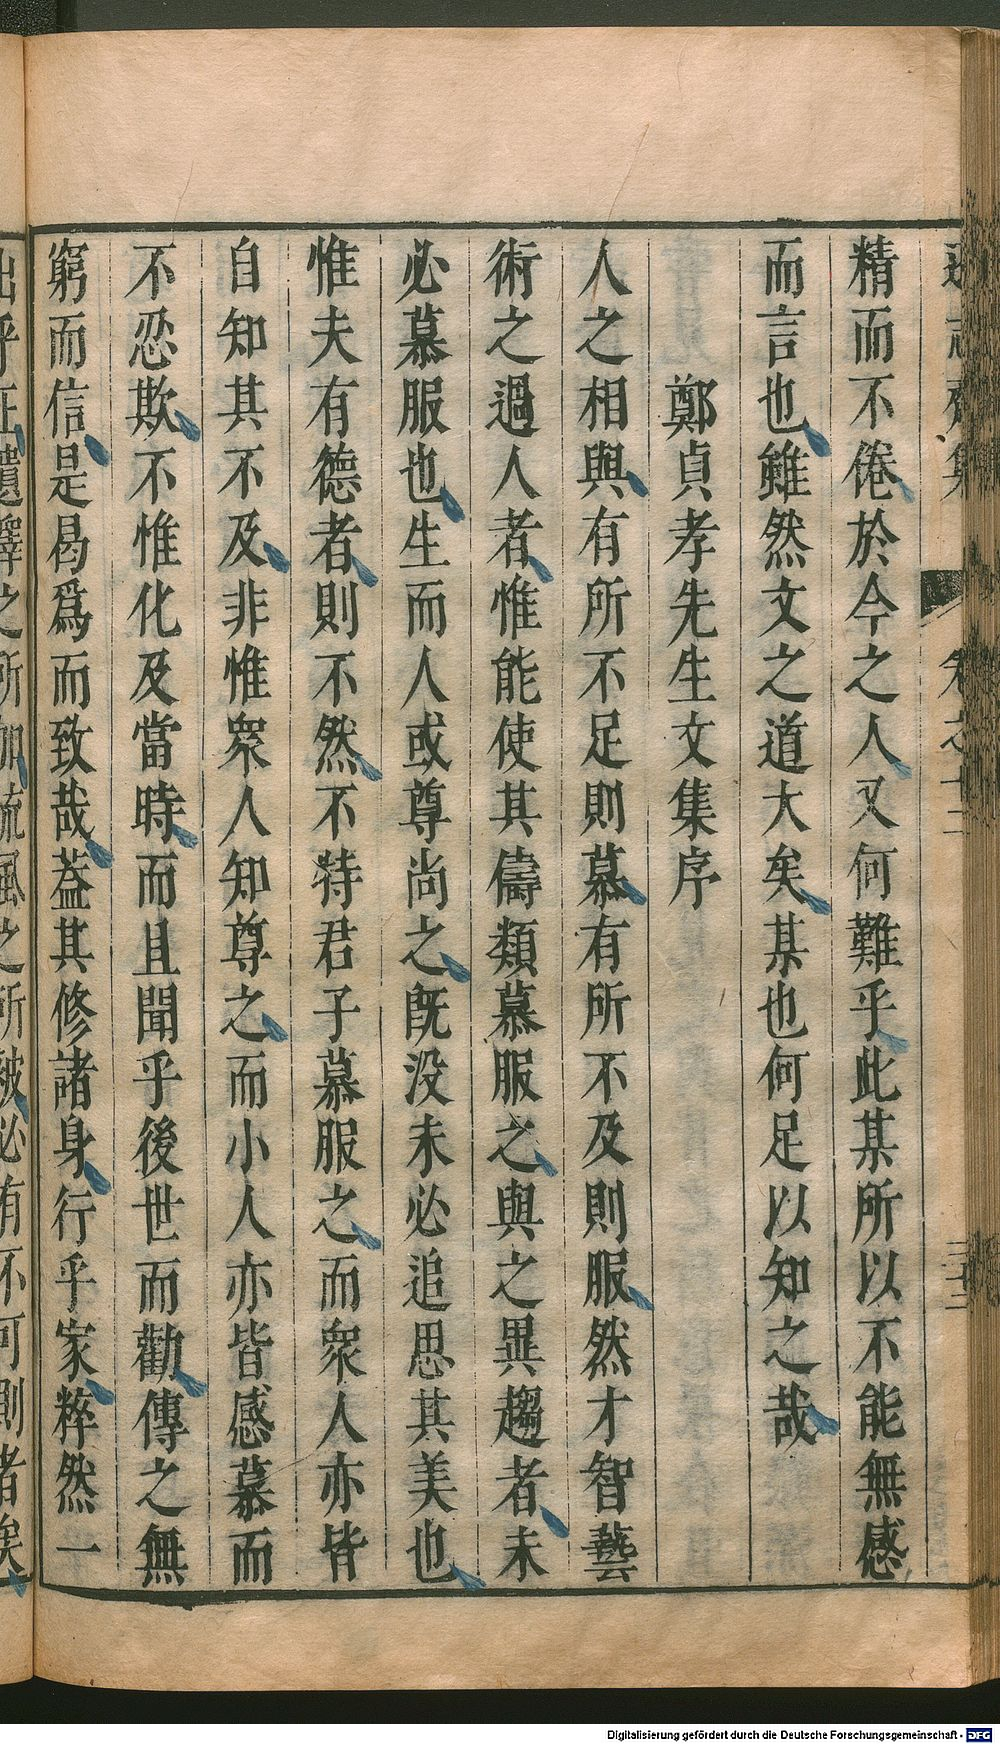 精而不倦於今之人又何難乎此某所以不能無感
而言也雖然文之道大矣某也何足以知之哉
鄭貞孝先生文集序
人之相與有所不足則慕有所不及則服然才智藝
術之過人者惟能使其儔類慕服之與之異趨者未
必慕服也生而人或尊尚之既没未必追思其美也
惟夫有德者則不然不特君子慕服之而衆人亦皆
自知其不及非惟衆人知尊之而小人亦皆感慕而
不忍欺不惟化及當時而且聞乎後世而勸傳之無
窮而信是曷爲而致哉葢其修諸身行乎家粹然一
Digitalisierung gefördert durch die Deutsche Forschungsgemeinschaft - DFG